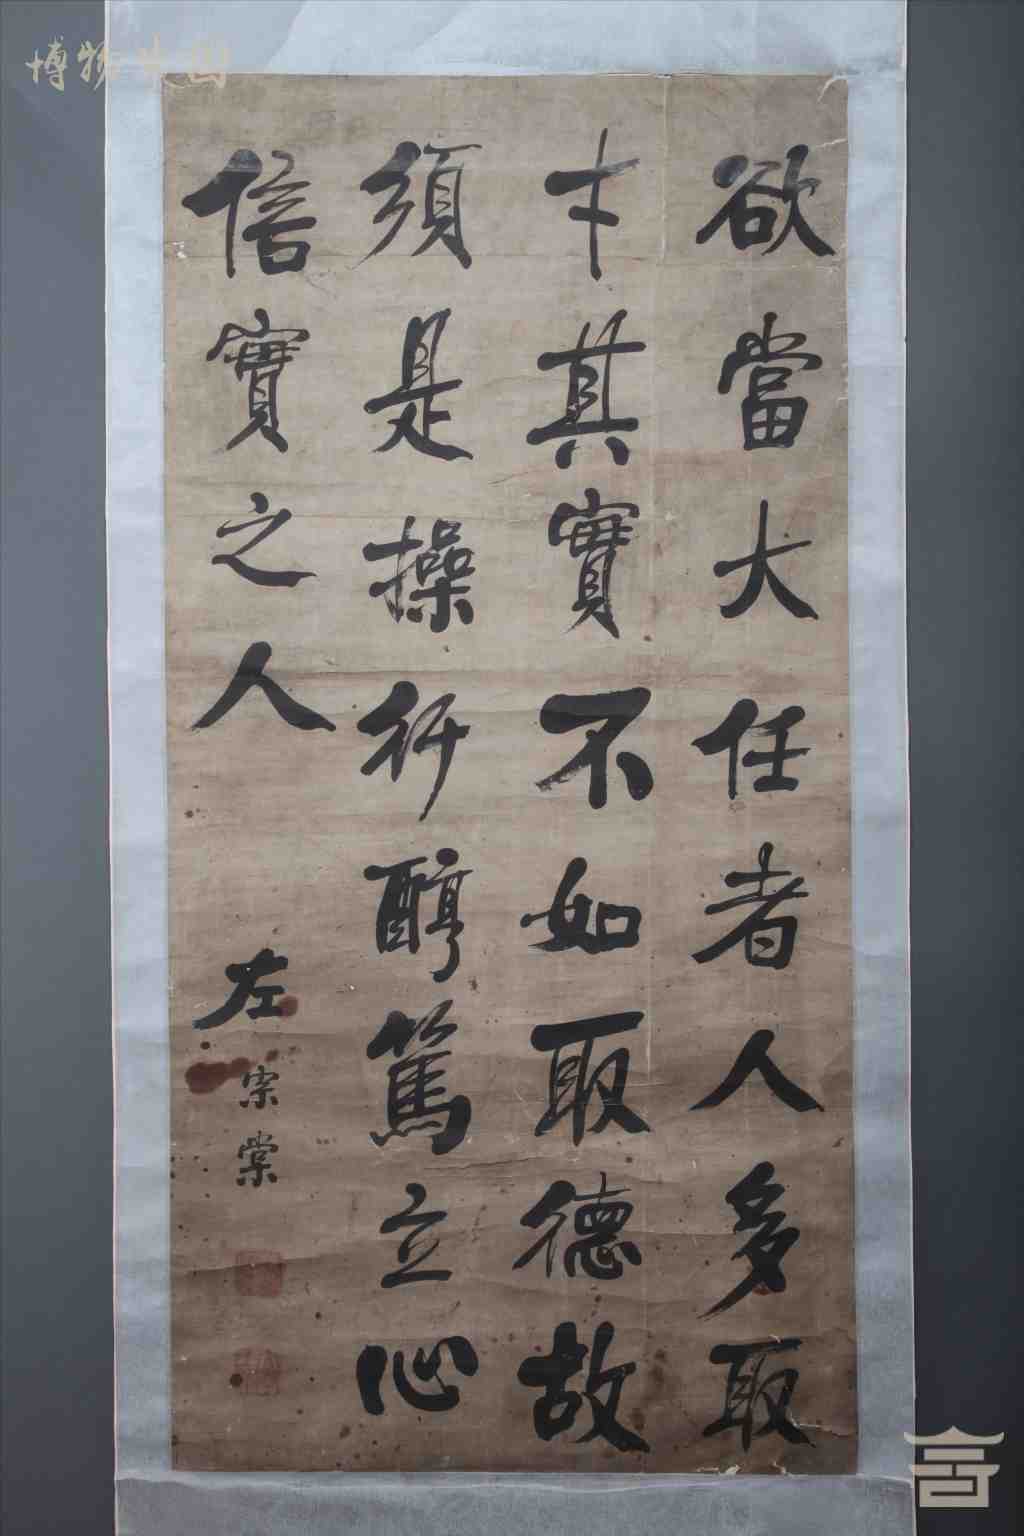 欲當大任者人多取
才其實不如取德故
須是操行醇篤立心
信實之人
左宗棠
博物中国